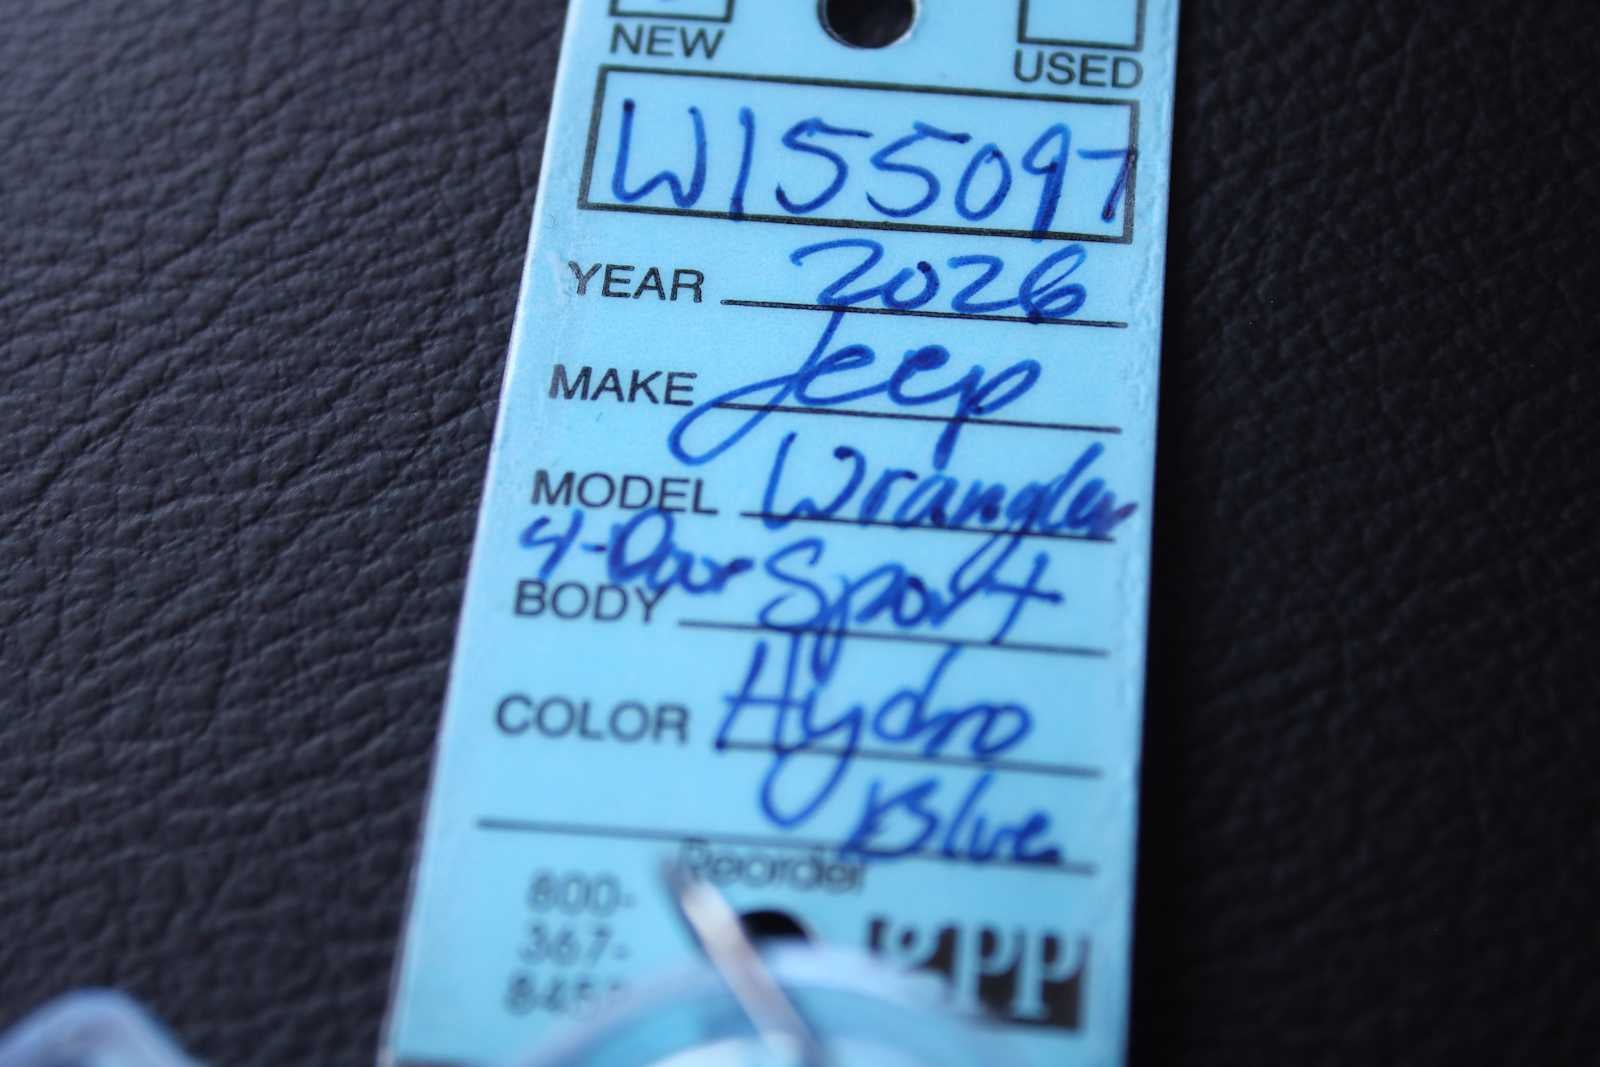 NEW USED
W155097
YEAR 2026
MAKE Jeep
MODEL Wrangler
4-Door Sport
BODY
COLOR Hydro
Blue
Reorder
800-
367-